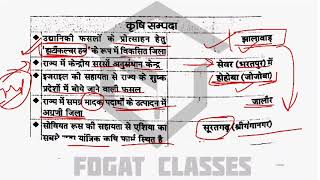 कृषि सम्पदा
उद्यानिकी फसलों के प्रोत्साहन हेतु
"हार्टीकल्चर हब" के रूप में विकसित जिला
झालावाड़
राज्य में केन्द्रीय सरसों अनुसंधान केन्द्र
सेवर (भरतपुर) में
इजराइल की सहायता से राज्य के शुष्क
प्रदेशों में बोये जाने वाली फसल
होहोबा (जोजोबा)
राज्य में समग्र मादक पदार्थों के उत्पादन में
अग्रणी जिला
जालौर
सोवियत रूस की सहायता से एशिया का
सबसे यांत्रिक कृषि फार्म स्थित है
सूरतगढ़ (श्रीगंगानगर)
FOGAT CLASSES